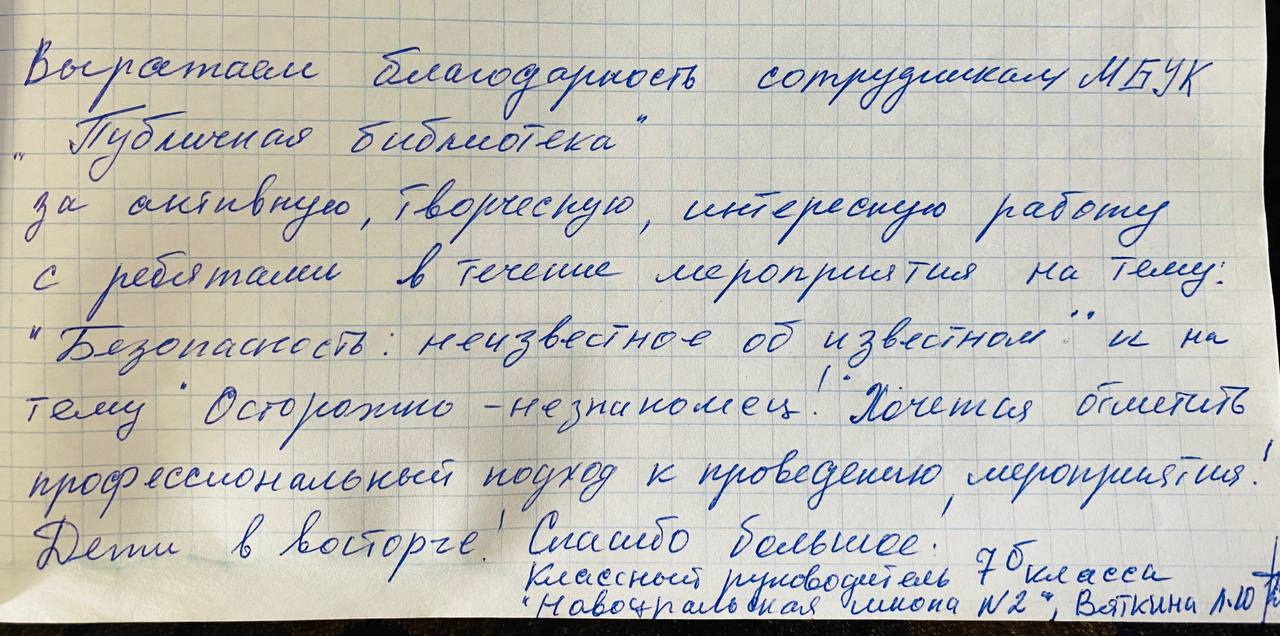 Выражаем благодарность сотрудникам МБУК
"Публичная библиотека"
за активную, творческую, интересную работу
с ребятами в течение мероприятия на тему:
"Безопасность: неизвестное об известном" и на
тему "Осторожно - незнакомец!" Хочется отметить
профессиональный подход к проведению мероприятия!
Дети в восторге! Спасибо большое!
Классный руководитель 7б класса
"Новоуральская школа №2", Вяткина Л.Ю